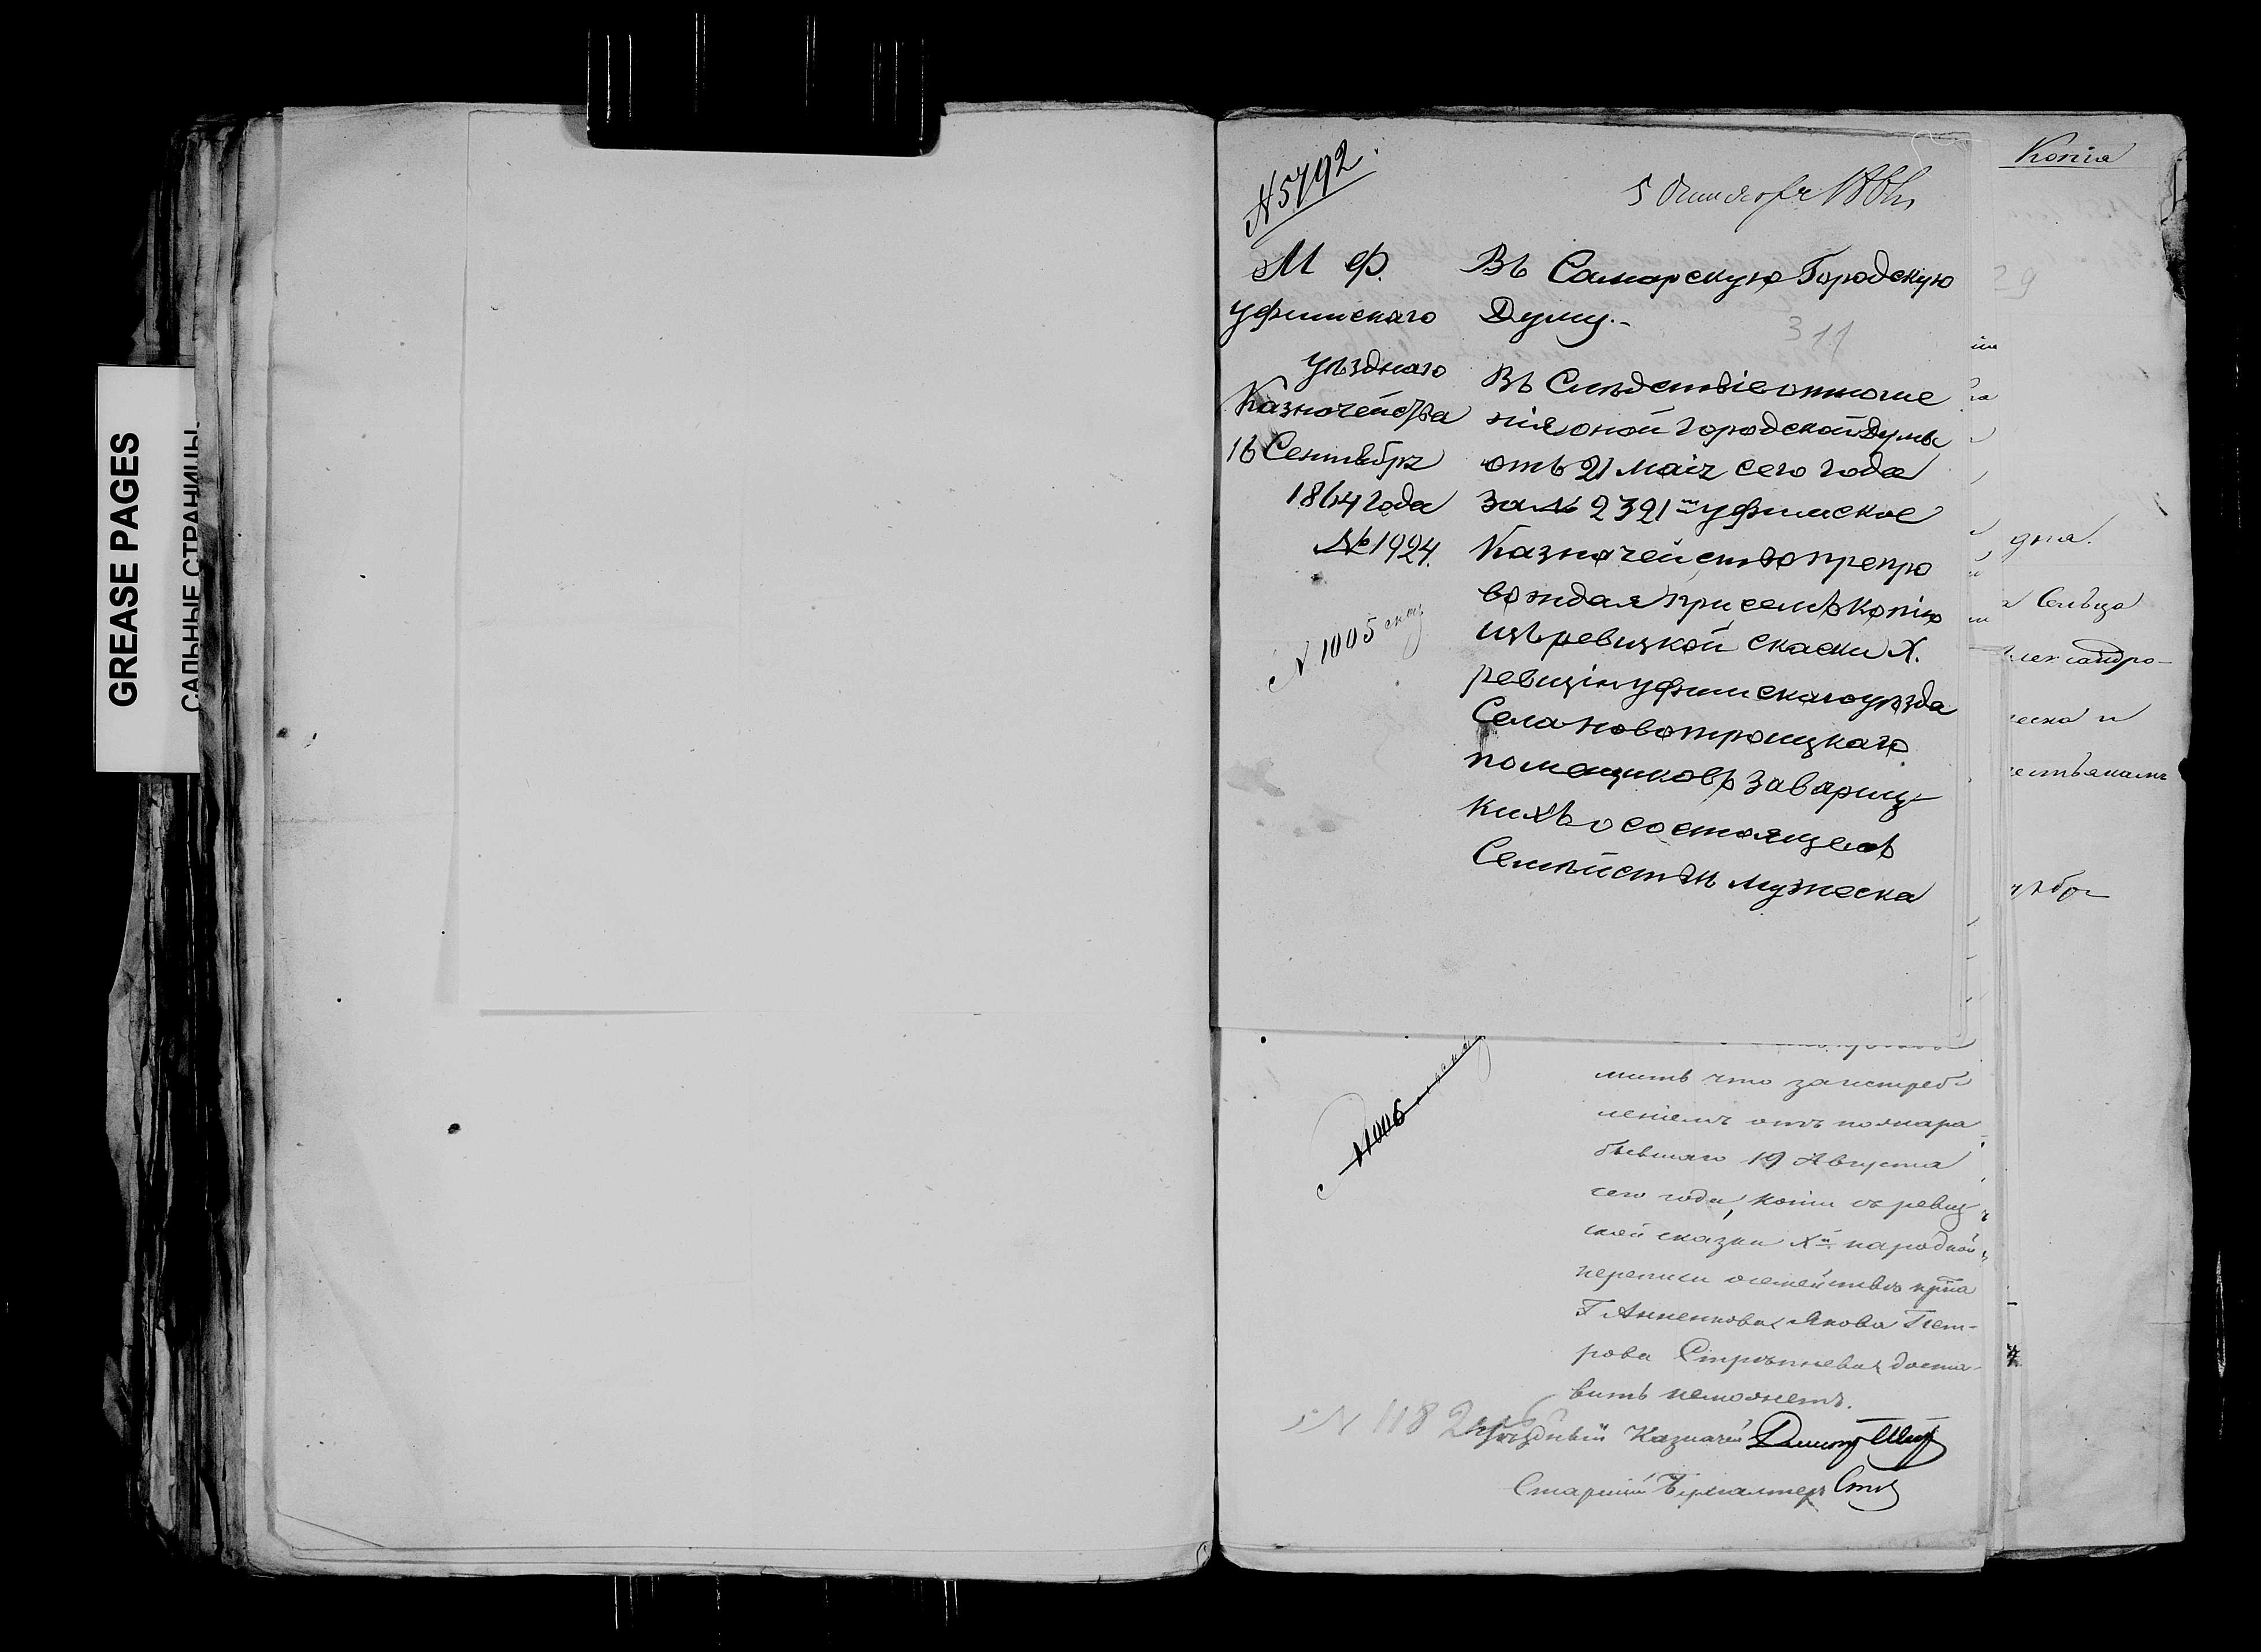 GREASE PAGES
САЛЬНЫЕ СТРАНИЦЫ
№ 5792
5 Октября 1864
М Ф.
Уфимскаго
Уѣзднаго
Казначейства
16 Сентября
1864 года
№ 1924.
№ 1005
Въ Самарскую Городскую
Думу.-
311
Въ Слѣдствіе отноше
нія оной Городской Думы
отъ 21 маія сего года
за № 2321 Уфимское
Казначейство препро
вождая при семъ копію
изъ ревизкой скаски X.
ревизіи Уфимскаго уѣзда
Села Новотроицкаго
помещиковъ Заварiц-
кихъ о состоящемъ
Семѣйствѣ мужеска
№ 1006
мить что за истреб
леніемъ отъ пожара
бывшаго 19 Августа
сего года, копіи съ ревиз
ской сказки Xй народной
переписи о семействѣ крѣна
Г. Анненкова Якова Пет-
рова Стрѣпнева доста-
вить неможетъ.
№ 1182
Уѣздный Казначей
Старшій Бухгалтеръ
Копія
29
дня.
Сельца
Александро-